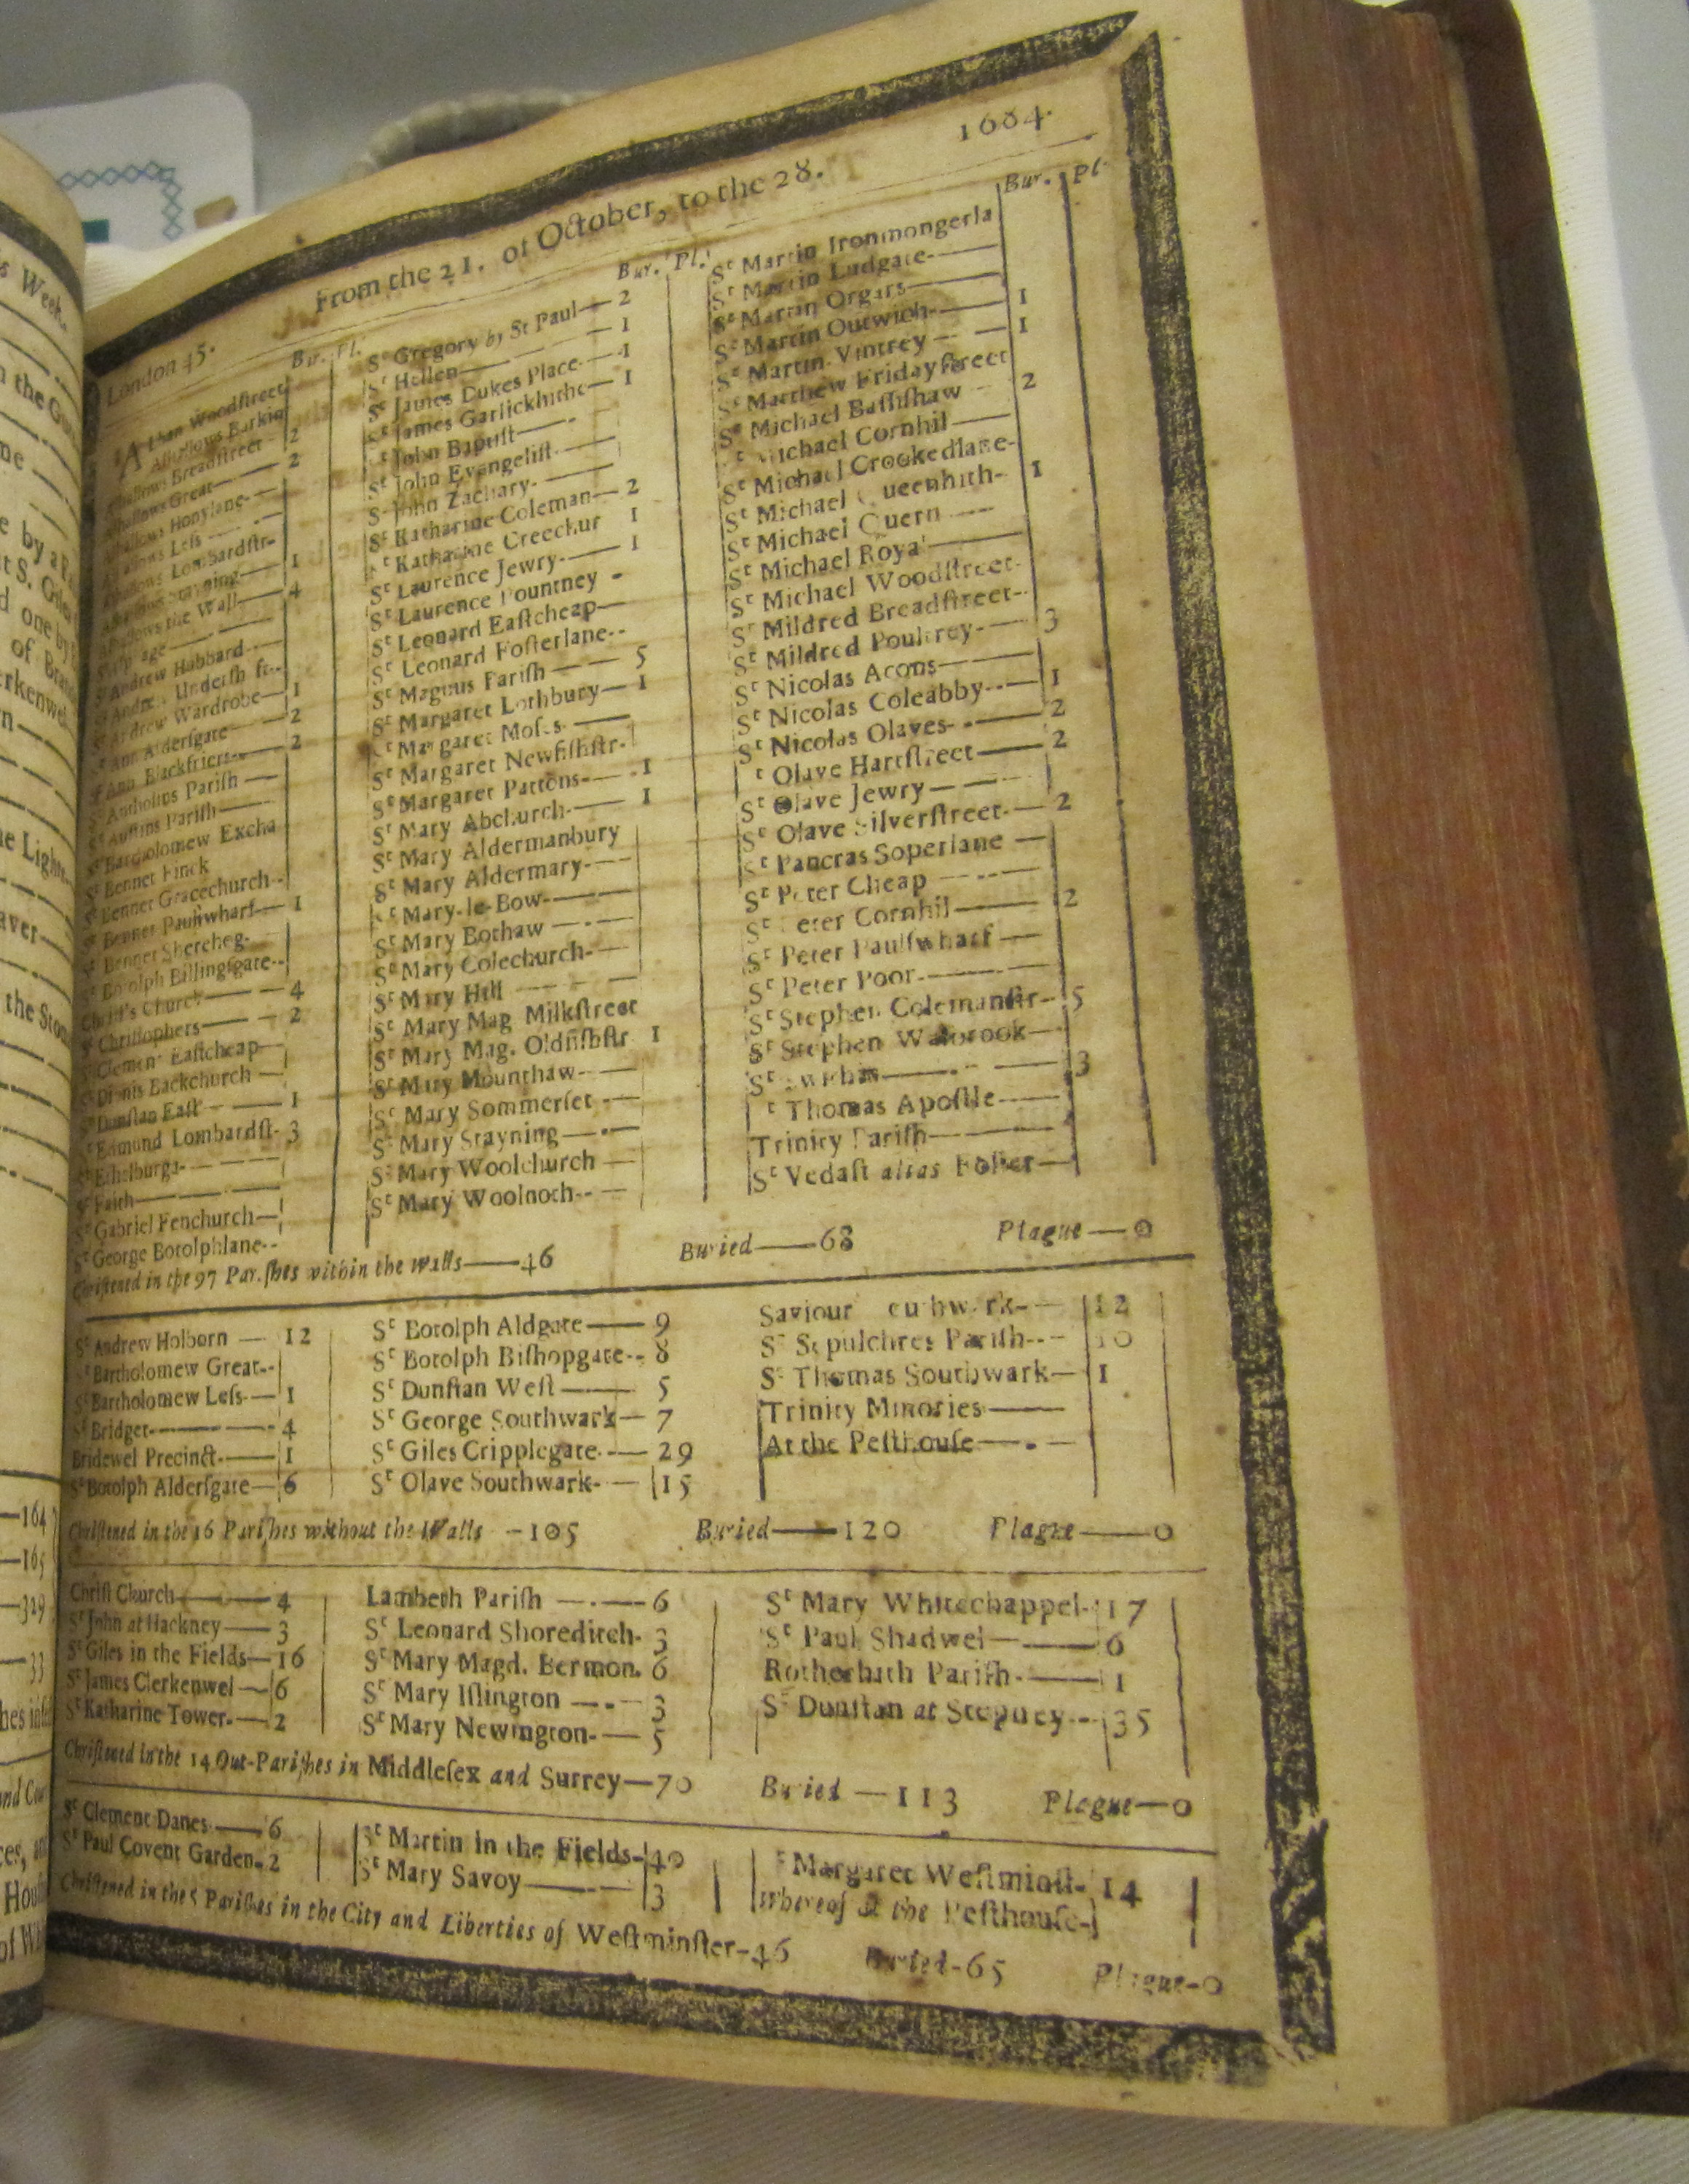 s Week.
London 45.
From the 21. of October, to the 28.
1684.
Bur. Pl.
A lban Woodstreet
Alhallows Barkin
Alhallows Breadstreet - 2
Alhallows Great — 2
Alhallows Honylane-
Alhallows Less
Alhallows Lombardstr-
Alhallows Stayning — 1
Alhallows the Wall — 4
Alphage
St Andrew Hubbard
St Andrew Undersh ft--
St Andrew Wardrobe — 1
St Ann Aldersgate — 2
St Ann Blackfriers — 2
St Antholins Parish —
St Austins Parish —
St Bartholomew Excha
St Bennet Finck
St Bennet Gracechurch--
St Bennet Paulswharf — 1
St Bennet Sherehog-
St Botolph Billingsgate--
Christ's Church — 4
St Christophers — 2
St Clement Eastcheap
St Dionis Backchurch —
St Dunstan East — 1
St Edmund Lombardst- 3
St Ethelburga-
St Faith
St Gabriel Fenchurch—
St George Botolphlane--
Bur. Pl.
St Gregory by St Paul — 2
St Hellen — 1
St James Dukes Place — 1
St James Garlickhithe — 1
St John Baptist —
St John Evangelist —
St John Zachary-
St Katharine Coleman — 2
St Katharine Creechur 1
St Laurence Jewry — 1
St Laurence Pountney -
St Leonard Eastcheap—
St Leonard Fosterlane--
St Magnus Parish — 5
St Margaret Lothbury — 1
St Margaret Moses —
St Margaret Newfishstr-
St Margaret Pattons — 1
St Mary Abchurch — 1
St Mary Aldermanbury
St Mary Aldermary-
St Mary-le-Bow-
St Mary Bothaw —
St Mary Colechurch-
St Mary Hill —
St Mary Mag Milkstreet
St Mary Mag. Oldfishstr 1
St Mary Mounthaw-
St Mary Sommerset —
St Mary Stayning —
St Mary Woolchurch —
St Mary Woolnoth-- —
Bur. Pl.
St Martin Ironmongerla
St Martin Ludgate-
St Martin Orgars—
St Martin Outwich- — 1
St Martin Vintrey — 1
St Matthew Fridaystreet
St Michael Bassishaw 2
St Michael Cornhil —
St Michael Crookedlane-
St Michael Queenhith- 1
St Michael Quern —
St Michael Royal —
St Michael Woodstreet-
St Mildred Breadstreet--
St Mildred Poultrey — 3
St Nicolas Acons —
St Nicolas Coleabby-- — 1
St Nicolas Olaves — 2
St Olave Hartstreet — 2
St Olave Jewry —
St Olave Silverstreet- — 2
St Pancras Soperlane —
St Peter Cheap —
St Peter Cornhil — 2
St Peter Paulswharf —
St Peter Poor —
St Stephen Colemanstr- 5
St Stephen Walbrook—
St Swithin — 3
St Thomas Apostle —
Trinity Parish —
St Vedast alias Foster —
Christened in the 97 Parishes within the walls — 46 Buried — 68 Plague — 0
St Andrew Holborn — 12
St Bartholomew Great--
St Bartholomew Less — 1
St Bridget — 4
Bridewel Precinct — 1
St Botolph Aldersgate — 6
St Botolph Aldgate — 9
St Botolph Bishopgate-- 8
St Dunstan West — 5
St George Southwark — 7
St Giles Cripplegate — 29
St Olave Southwark- — 15
Saviour Southwark- — 12
St Sepulchres Parish--- 10
St Thomas Southwark — 1
Trinity Minories —
At the Pesthouse —
Christened in the 16 Parishes without the Walls - 105 Buried — 120 Plague — 0
Christ Church — 4
St John at Hackney — 3
St Giles in the Fields — 16
St James Clerkenwel — 6
St Katharine Tower — 2
Lambeth Parish — 6
St Leonard Shoreditch- 3
St Mary Magd. Bermon. 6
St Mary Islington — 3
St Mary Newington — 5
St Mary Whitechappel- 17
St Paul Shadwel — 6
Rotherhith Parish — 1
St Dunstan at Stepney -- 35
Christened in the 14 Out-Parishes in Middlesex and Surrey — 70 Buried — 113 Plague — 0
St Clement Danes — 6
St Paul Covent Garden- 2
St Martin in the Fields- 40
St Mary Savoy — 3
St Margaret Westminst- 14
Whereof at the Pesthouse-
Christened in the 5 Parishes in the City and Liberties of Westminster - 46 Buried - 65 Plague - 0